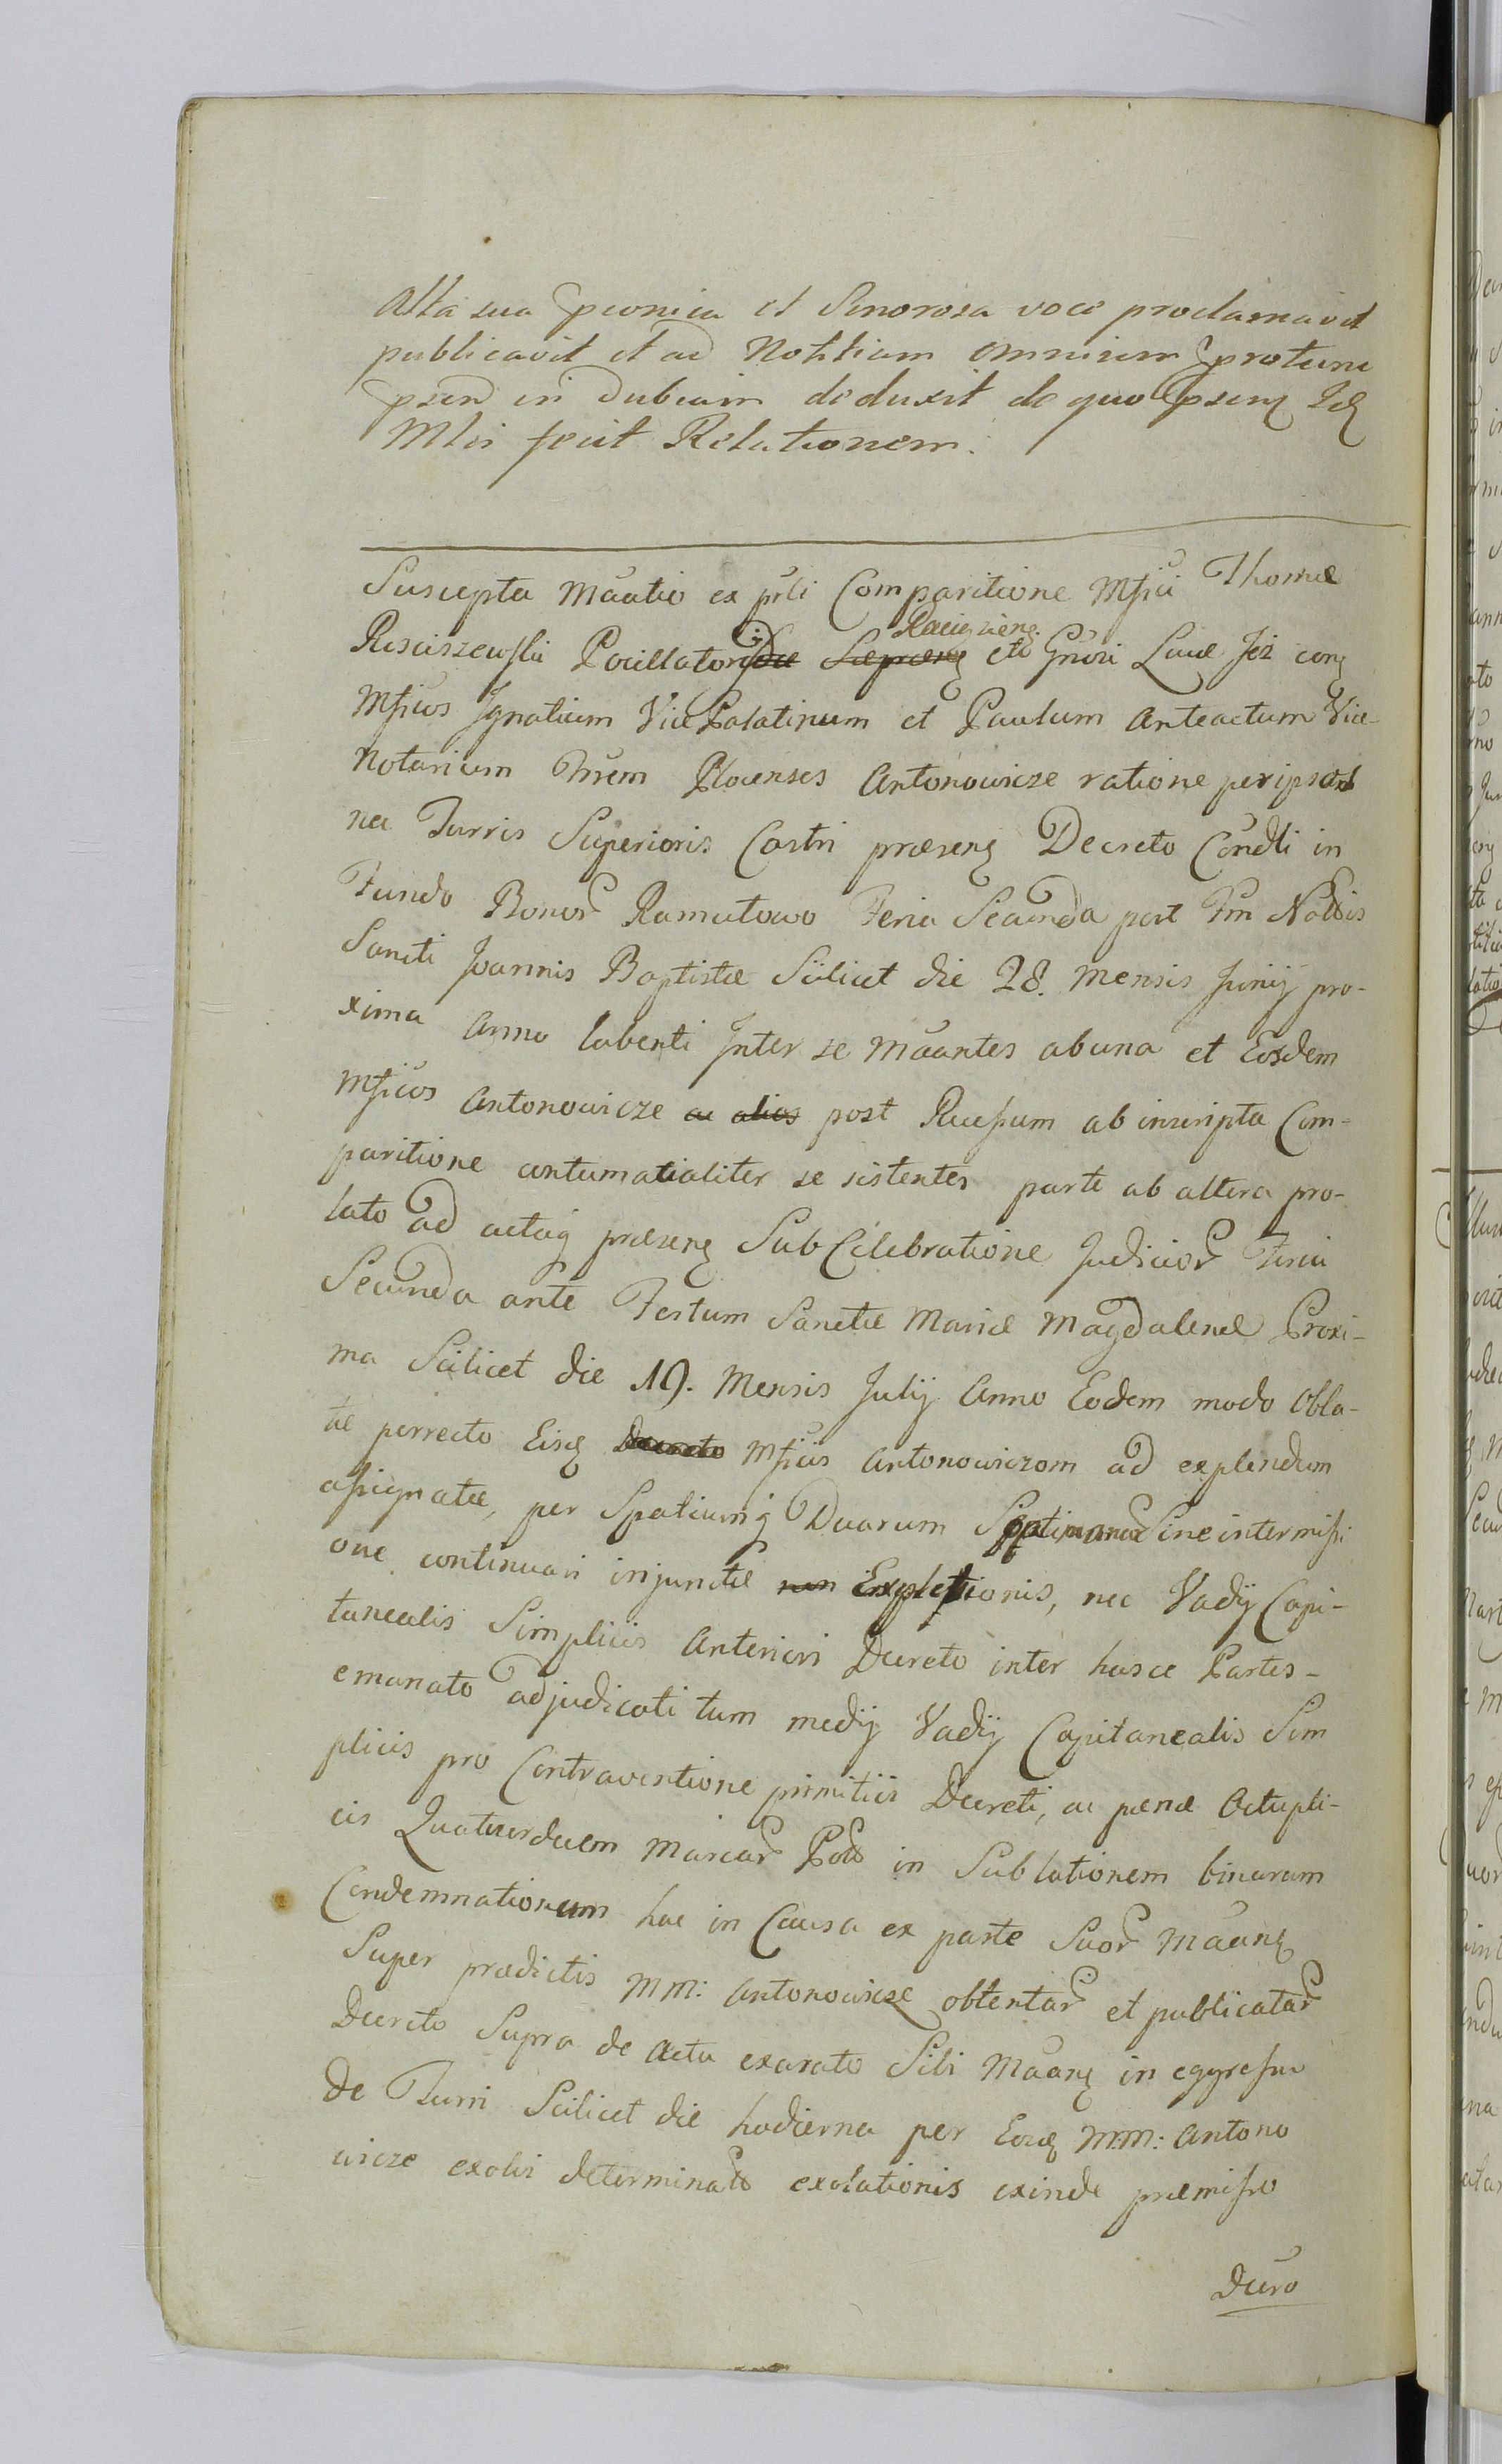 Alta sua pconica et Sonorosa voce proclamavit
publicavit et ad Notitiam omnium protunc
psen in dubiam deduxit de quo psens Ids
Mlis fecit Relationem.
Suscepta Maatio ex prli Comparitione Mfici Thomæ
Rosciszewski Pocillatoris Racigziens. etc Gnosi Laue Jez cong
Mficos Ignatium Vice Palatinum et Paulum Anteactum Vice-
Notarium Trrem Plocenses Antonowicze ratione per ipsos
nec Turris Superioris Castri præsens Decreto Condli in
Fundo Bonor Ramutowo Feria Secunda post Fm Nottis
Sancti Joannis Baptistæ Scilicet die 28. Mensis Junij pro-
xima Anno labenti Inter se Maantes ab una et Eosdem
Mficos Antonowicze ac alios post Recessum ab inscripta Com-
paritione contumatialiter se sistentes parte ab altera pro-
lato ad actaq præsens Sub Celebratione Judicior Feria
Secunda ante Festum Sanctæ Mariæ Magdalenæ Proxi-
ma Scilicet die 19. Mensis Julij Anno Eodem modo Obla-
tæ porrecto Eisq Decreto Mficis Antonowiczom ad explendum
assignatæ, per Spatiumq Duarum Septimanar Sine intermissi
one continuari injunctæ non Expletionis, nec Vadij Capi-
tanealis Simplicis Anteriori Decreto inter hasce Partes
emanato adjudicati tum medij Vadij Capitanealis Sim
plicis pro Contraventione primitiis Decreti, ac pænæ Octupli-
cis Quatuordecem Marcar Pol in Sublationem binarum
Condemnationum hac in Causa ex parte Suor Maang
Super prædictis MM: Antonowicze obtentar et publicatar
Decreto Supra de Actu exarato Sibi Maang in eggressu
De Turri Scilicet die hodierna per Eosd M:M: Antono
wicze exolvi determinato exolutionis exinde præmisso
Decro